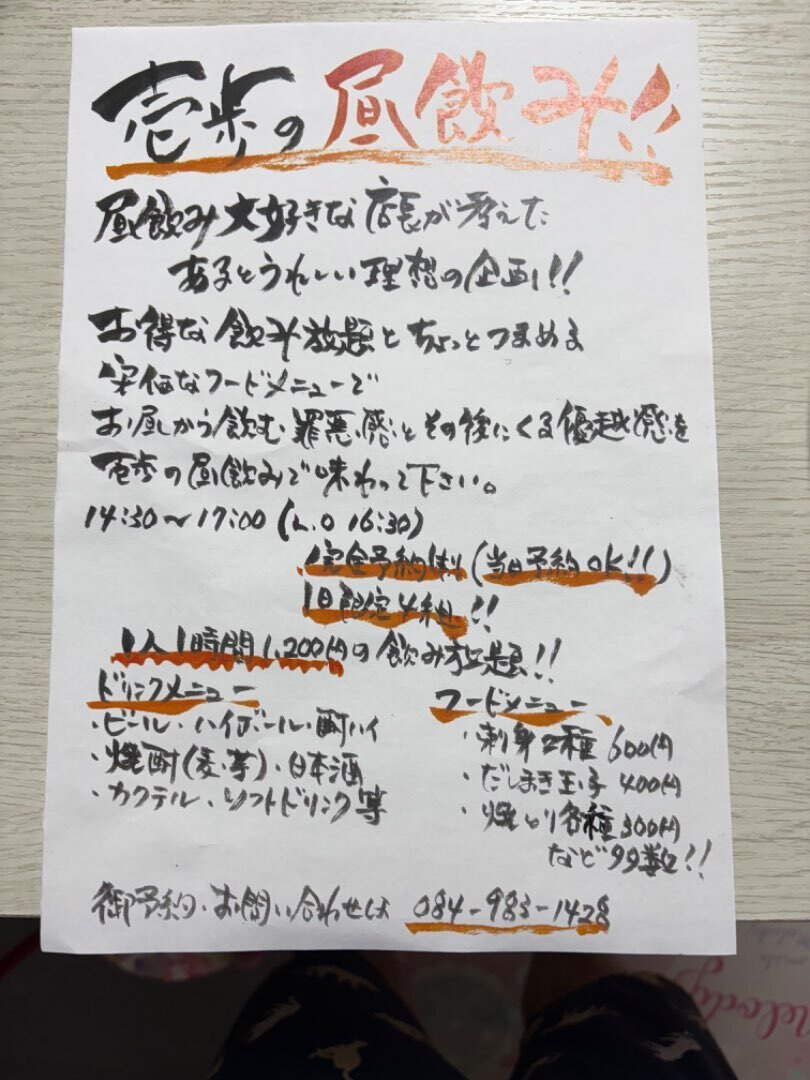 壱歩の昼飲み!!
昼飲み大好きな店長が考えた
あるとうれしい理想の企画!!
お得な飲み放題とちょっとつまめる
安価なフードメニューで
お昼から飲む罪悪感とその後にくる優越感を
壱歩の昼飲みで味わって下さい。
14:30〜17:00 (L.O 16:30)
完全予約制(当日予約OK!!)
1日限定4組!!
1人1時間1,200円の飲み放題!!
ドリンクメニュー
・ビール・ハイボール・酎ハイ
・焼酎(麦・芋)・日本酒
・カクテル・ソフトドリンク等
フードメニュー
・刺身2種 600円
・だしまき玉子 400円
・焼とり各種300円
など多数!!
御予約・お問い合わせは 084-983-1428
melody